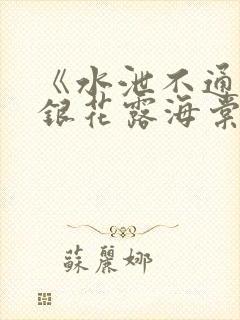 《水泄不通
銀花露海棠
蘇麗娜